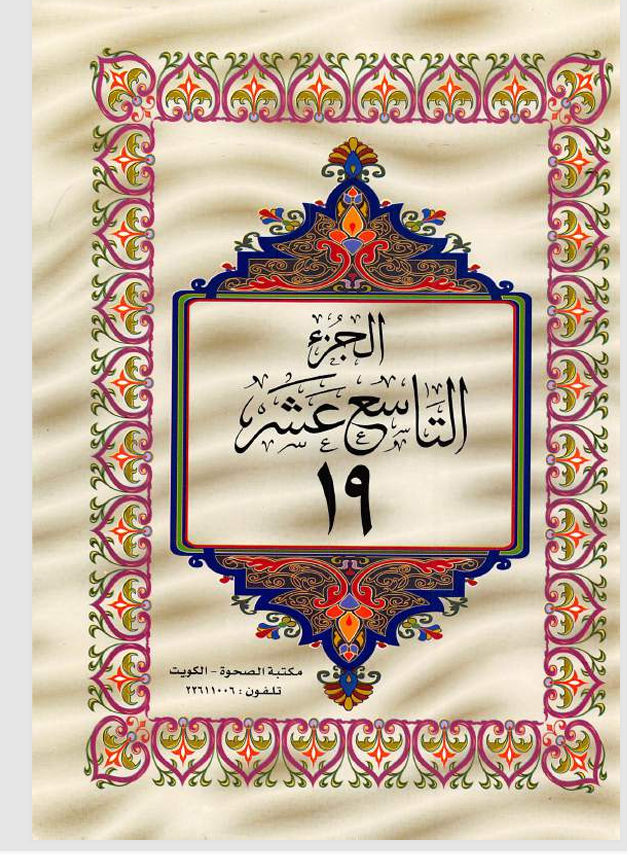 الجزء
التاسع عشر
١٩
مكتبة الصحوة - الكويت
تلفون : ٢٢٦١١٠٠٦